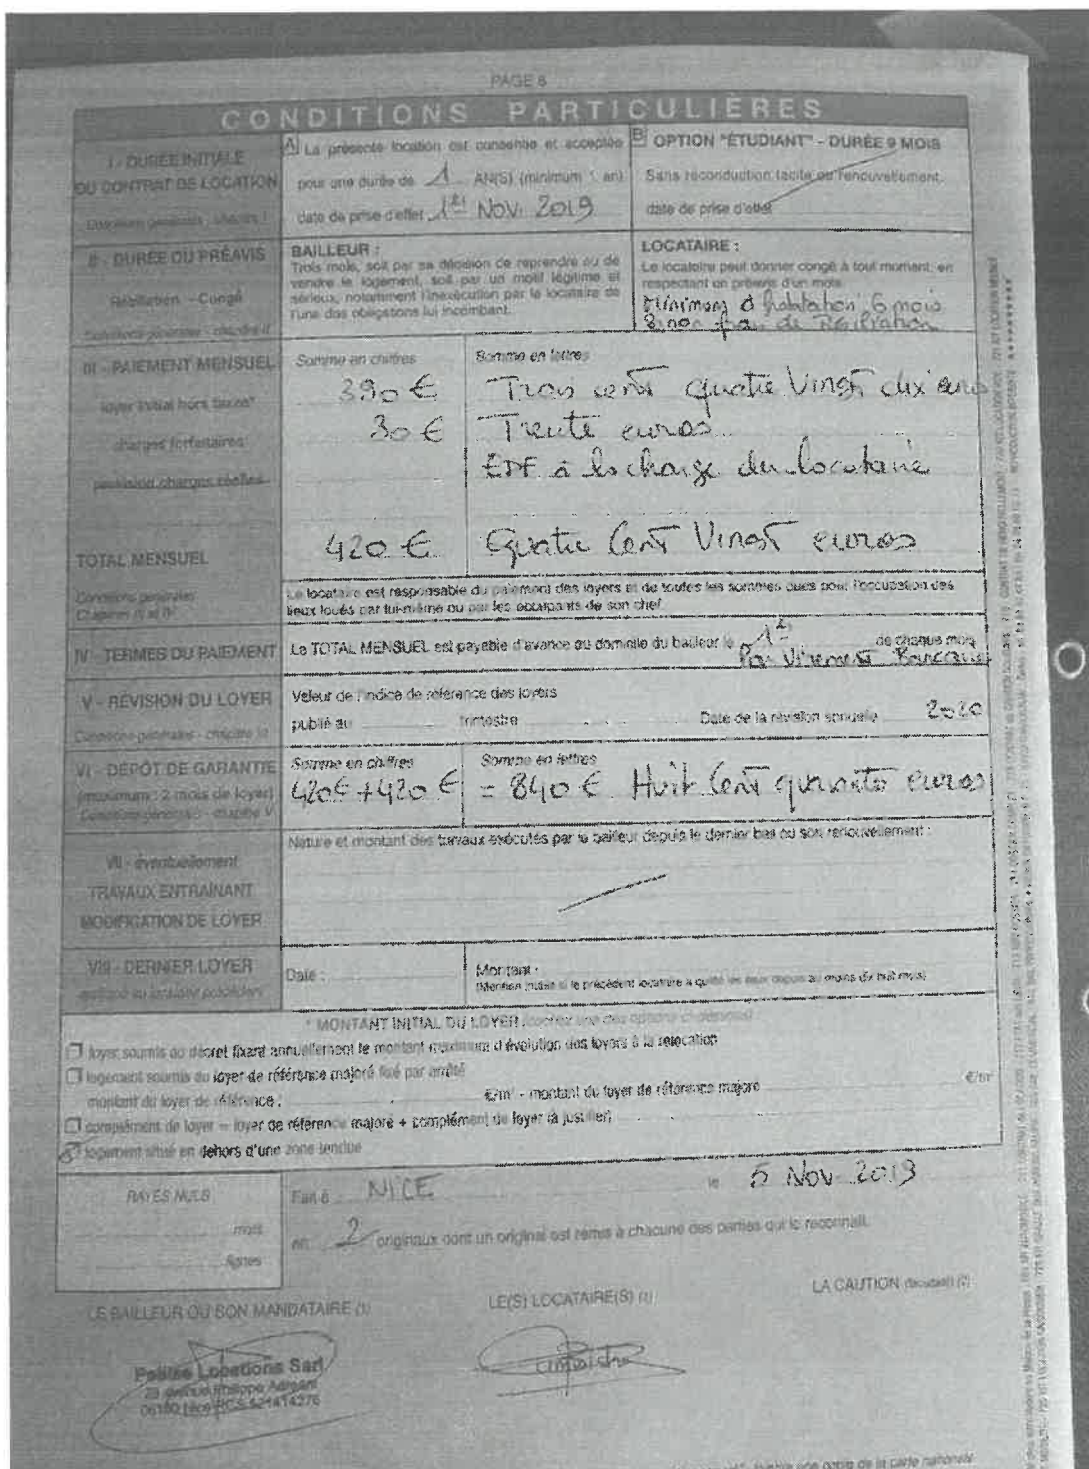 PAGE 6
CONDITIONS PARTICULIÈRES
I - DURÉE INITIALE
DU CONTRAT DE LOCATION
A La présente location est consentie et acceptée
pour une durée de 1 AN(S) (minimum 1 an)
date de prise d'effet 1er NOV. 2019
B OPTION "ÉTUDIANT" - DURÉE 9 MOIS
Sans reconduction tacite ou renouvellement.
date de prise d'effet
II - DURÉE DU PRÉAVIS
Résiliation - Congé
Conditions générales - chapitre II
BAILLEUR :
Trois mois, soit par sa décision de reprendre ou de
vendre le logement, soit par un motif légitime et
sérieux, notamment l'inexécution par le locataire de
l'une des obligations lui incombant.
LOCATAIRE :
Le locataire peut donner congé à tout moment, en
respectant un préavis d'un mois.
Minimum d'habitation 6 mois
Sinon frais de Résiliation
III - PAIEMENT MENSUEL
Somme en chiffres
Somme en lettres
loyer initial hors taxes*
390 €
Trois cent quatre Vingt dix euros
charges forfaitaires
30 €
Trente euros
provision charges réelles
EDF à la charge du locataire
TOTAL MENSUEL
420 €
Quatre Cent Vingt euros
Conditions générales
Le locataire est responsable du paiement des loyers et de toutes les sommes dues pour l'occupation des
lieux loués par lui-même ou par les occupants de son chef.
IV - TERMES DU PAIEMENT
Le TOTAL MENSUEL est payable d'avance au domicile du bailleur le 1er de chaque mois
Par Virement Bancaire
V - RÉVISION DU LOYER
Valeur de l'indice de référence des loyers
publié au trimestre Date de la révision annuelle 2020
VI - DÉPÔT DE GARANTIE
(maximum : 2 mois de loyer)
Conditions générales - chapitre V
Somme en chiffres
Somme en lettres
420€ + 420 € = 840 € Huit Cent quarante euros
VII - éventuellement
TRAVAUX ENTRAÎNANT
MODIFICATION DE LOYER
Nature et montant des travaux exécutés par le bailleur depuis le dernier bail ou son renouvellement :
VIII - DERNIER LOYER
appliqué au locataire précédent
Date :
Montant :
(Mention inutile si le précédent locataire a quitté les lieux depuis au moins dix huit mois)
* MONTANT INITIAL DU LOYER
loyer soumis au décret fixant annuellement le montant maximum d'évolution des loyers à la relocation
logement soumis au loyer de référence majoré fixé par arrêté
montant du loyer de référence : €/m² - montant du loyer de référence majoré €/m²
complément de loyer = loyer de référence majoré + complément de loyer (à justifier)
logement situé en dehors d'une zone tendue
RAYÉS NULS
mots
lignes
Fait à NICE le 5 Nov 2019
en 2 originaux dont un original est remis à chacune des parties qui le reconnaît.
LE BAILLEUR OU SON MANDATAIRE (1)
LE(S) LOCATAIRE(S) (1)
LA CAUTION (facultatif) (2)
Locations Sarl